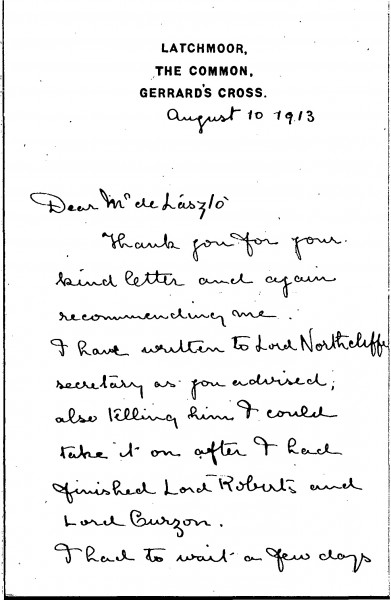 LATCHMOOR,
THE COMMON,
GERRARD'S CROSS.
August 10 1913
Dear Mr de László
Thank you for your
kind letter and again
recommending me.
I have written to Lord Northcliffe
secretary as you advised,
also telling him I could
take it on after I had
finished Lord Roberts and
Lord Curzon.
I had to wait a few days